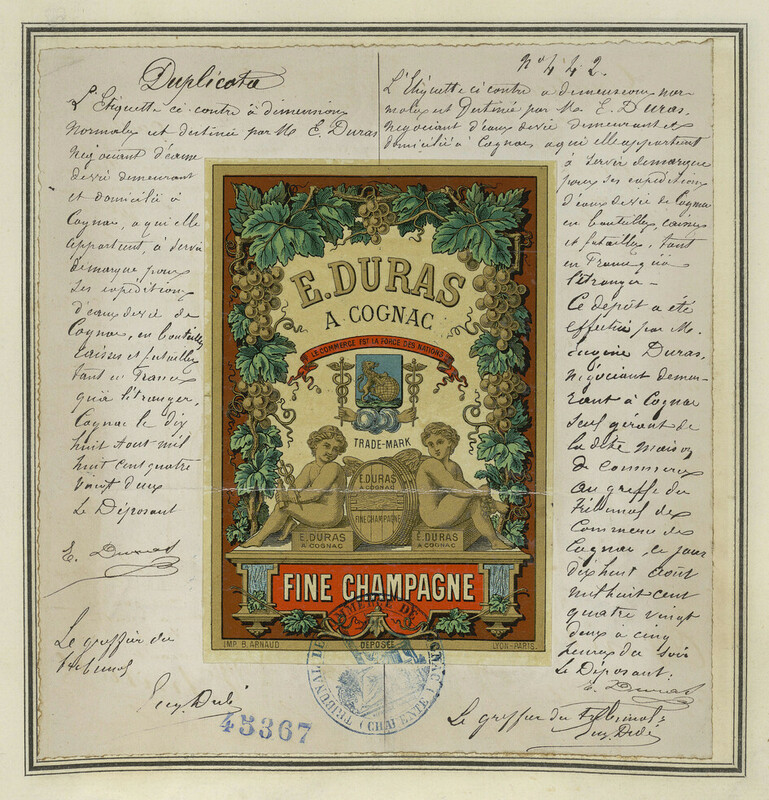 Duplicata
L'Etiquette ci contre à dimensions
normales est destinée par M E. Duras
négociant d'eaux
de vie demeurant
et domicilié à
Cognac, a qui elle
appartient, à servir
de marque pour
ses expéditions
d'eaux de vie de
Cognac, en bouteilles
caisses et futailles
tant en France
qu'à l'étranger.
Cognac le dix
huit Aout mil
huit cent quatre
vingt deux
Le Déposant
E. Duras
Le greffier du
tribunal
45367
No 442.
L'Etiquette ci contre à dimensions nor-
males est Destinée par M. E. Duras,
négociant d'eaux de vie demeurant et
domicilié à Cognac a qui elle appartient
à servir de marque
pour ses expéditions
d'eaux de vie de Cognac
en bouteilles, caisses
et futailles, tant
en France qu'à
l'étranger.
Ce dépôt a été
effectué par M.
Eugène Duras,
négociant demeu-
rant à Cognac
seul gérant de
la dite maison
de commerce
au greffe du
Tribunal de
Commerce de
Cognac, ce jour
dix huit Août
mil huit cent
quatre vingt
deux à cinq
heures du soir
Le Déposant:
E. Duras
Le greffier du tribunal:
E. DURAS
A COGNAC
LE COMMERCE EST LA FORCE DES NATIONS
TRADE-MARK
E. DURAS
A COGNAC
FINE CHAMPAGNE
E. DURAS
A COGNAC
E. DURAS
A COGNAC
FINE CHAMPAGNE
IMP. B. ARNAUD
DÉPOSÉ
LYON-PARIS.
TRIBUNAL DE COMMERCE DE COGNAC (CHARENTE)